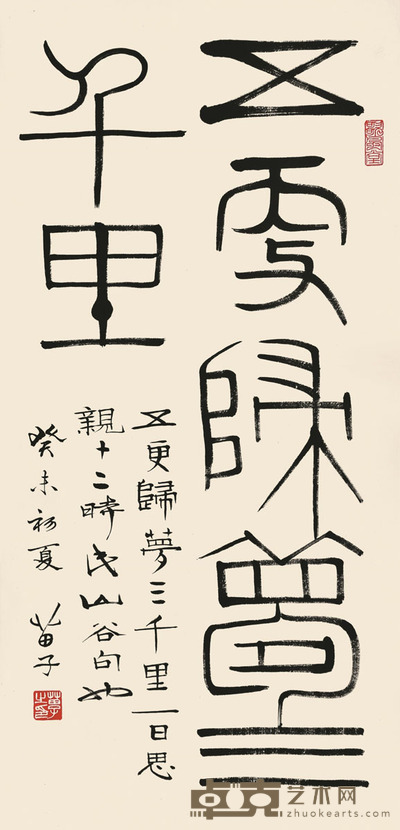 五更歸夢三
千里
五更歸夢三千里一日思
親十二時山谷句也
癸未初夏 苗子
卓克艺术网
zhuokearts.com